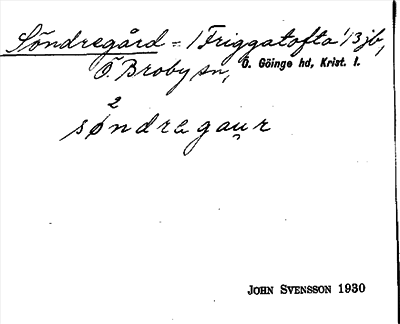 Söndregård = 1 Friggatofta 1/3 jb,
Ö. Broby sn, Ö. Göinge hd, Krist. l.
2
søndregau̯r
JOHN SVENSSON 1930